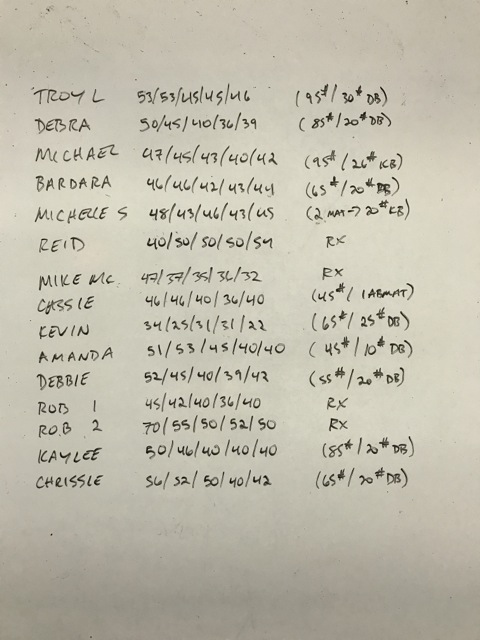 TROY L 53/53/45/45/46 (95#/30# DB)
DEBRA 50/45/40/36/39 (85#/20# DB)
MICHAEL 47/45/43/40/42 (95#/26# KB)
BARDARA 46/46/42/43/44 (65#/20# DB)
MICHELLE S 48/43/46/43/45 (2 MAT→20# KB)
REID 40/50/50/50/54 RX
MIKE MC. 47/37/35/36/32 RX
CASSIE 46/46/40/36/40 (45#/1 ABMAT)
KEVIN 34/25/31/31/22 (65#/25# DB)
AMANDA 51/53/45/40/40 (45#/10# DB)
DEBBIE 52/45/40/39/42 (55#/20# DB)
ROB 1 45/42/40/36/40 RX
ROB 2 70/55/50/52/50 RX
KAYLEE 50/46/40/40/40 (85#/20# DB)
CHRISSIE 56/52/50/40/42 (65#/20# DB)